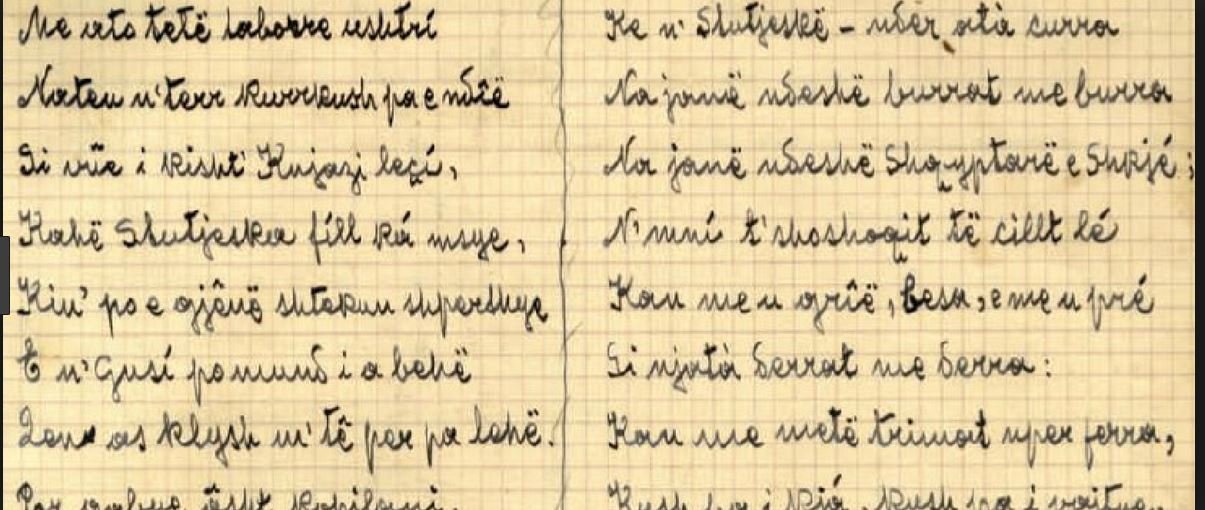 Me ato tetë taborre ushtrí
Naten n'terr kurrkush pa e ndîë
Si vûe i kisht' Knjazi leçí,
Kahë Shutjeska fíll ká msye,
Kin' po e gjênë shtekun shpershye
E n'Gusí po mund i a behë
as klysh m'tê per pa lehë.
âsht kopilani,
Ke n' Shutjeskë – nder atà curra
Na janë ndeshë burrat me burra
Na janë ndeshë Shqyptarë e Shkjé;
N'mní t'shoshoqit të cillt lé
Kan me u grîë, besa, e me u pré
Si njatà derrat me derra:
Kan me metë trimat nper ferra,
Kush i kjá, kush i vajtue.